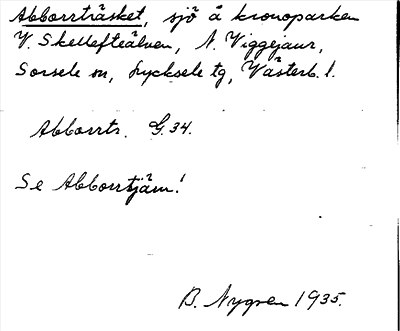 Abborrträsket, sjö å kronoparken
V. Skellefteälven, N. Viggejaur,
Sorsele sn, Lycksele tg, Västerb. l.
Abborrtr. G. 34.
Se Abborrtjärn!
B. Nygren 1935.